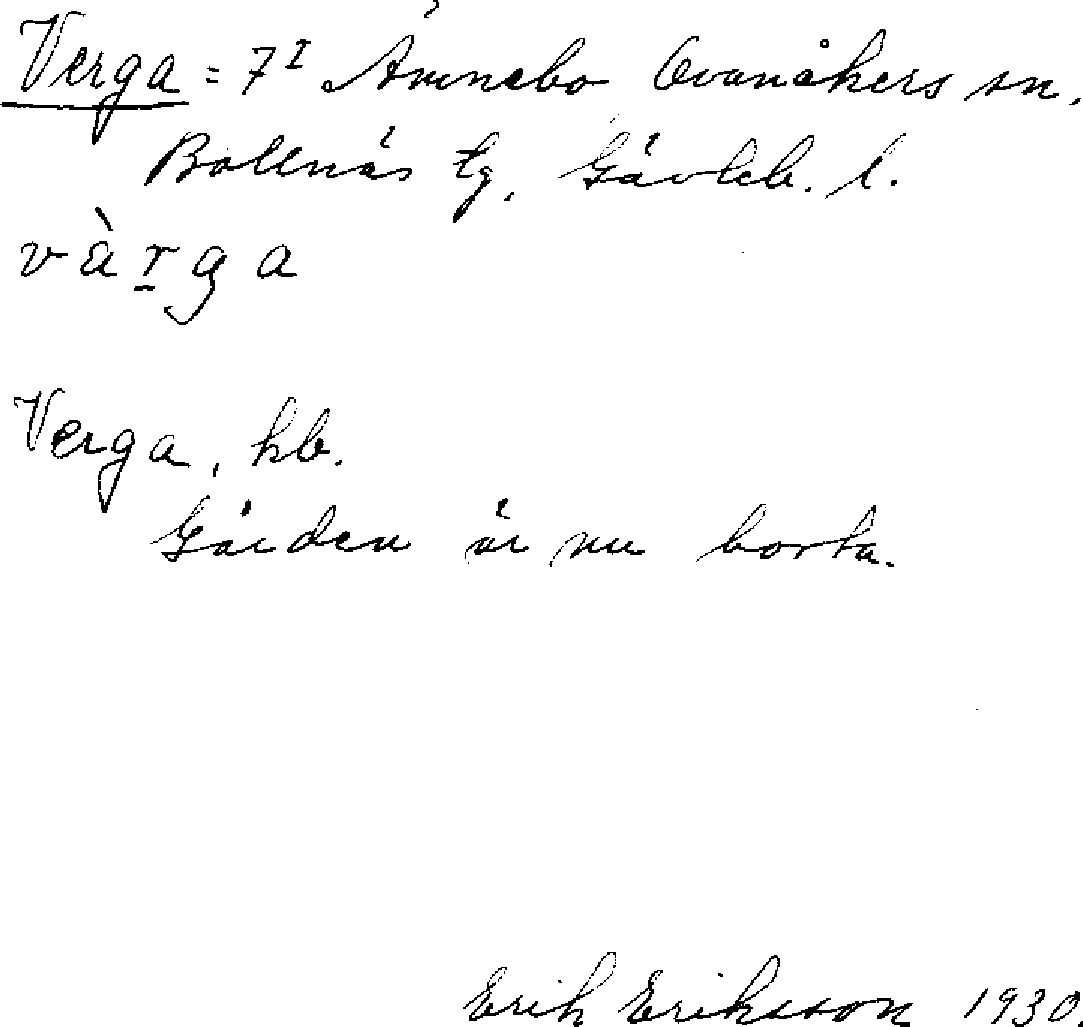 Verga = 7ᴵ Ämnebo Ovanåkers sn.
Bollnäs tg. Gävleb. l.
vàṟga
Verga, hb.
Gården är nu borta.
Erik Eriksson 1930.